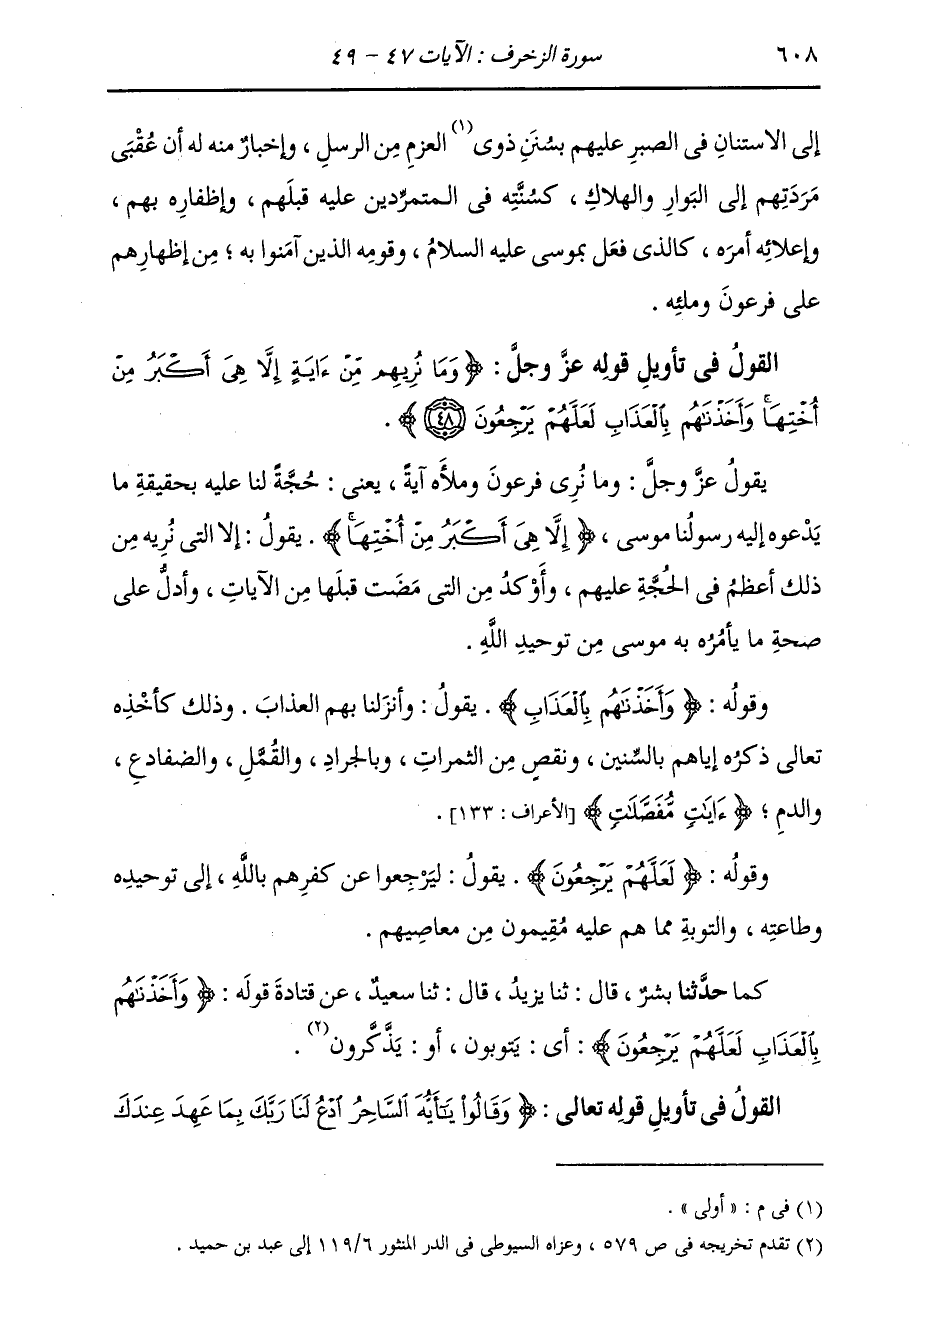 ٦٠٨ سورة الزخرف : الآيات ٤٧ - ٤٩
إلى الاستنانِ فى الصبرِ عليهم بسُننِ ذوى(١) العزمِ مِن الرسلِ ، وإخبارٌ منه له أن عُقْبَى
مَرَدَتِهم إلى البَوارِ والهلاكِ ، كسُنَّتِه فى المتمرِّدين عليه قبلَهم ، وإظفارِه بهم ،
وإعلائِه أمرَه ، كالذى فعَل بموسى عليه السلامُ ، وقومِه الذين آمَنوا به ؛ مِن إظهارِهم
على فرعونَ وملئِه .
القولُ فى تأويلِ قولِه عزَّ وجلَّ : ﴿ وَمَا نُرِيهِم مِّنْ ءَايَةٍ إِلَّا هِىَ أَكْبَرُ مِنْ
أُخْتِهَاۖ وَأَخَذْنَٰهُم بِٱلْعَذَابِ لَعَلَّهُمْ يَرْجِعُونَ ٤٨ ﴾ .
يقولُ عزَّ وجلَّ : وما نُرِى فرعونَ وملأَه آيةً ، يعنى : حُجَّةً لنا عليه بحقيقةِ ما
يَدْعوه إليه رسولُنا موسى ، ﴿ إِلَّا هِىَ أَكْبَرُ مِنْ أُخْتِهَاۖ ﴾ . يقولُ : إلا التى نُرِيه مِن
ذلك أعظمُ فى الحُجَّةِ عليهم ، وأَوْكدُ مِن التى مَضَت قبلَها مِن الآياتِ ، وأدلُّ على
صحةِ ما يأمُرُه به موسى مِن توحيدِ اللَّهِ .
وقولُه : ﴿ وَأَخَذْنَٰهُم بِٱلْعَذَابِ ﴾ . يقولُ : وأنزَلنا بهم العذابَ . وذلك كأخْذِه
تعالى ذكرُه إياهم بالسِّنين ، ونقصٍ مِن الثمراتِ ، وبالجرادِ ، والقُمَّلِ ، والضفادعِ ،
والدمِ ؛ ﴿ ءَايَٰتٍ مُّفَصَّلَٰتٍ ﴾ [الأعراف : ١٣٣] .
وقولُه : ﴿ لَعَلَّهُمْ يَرْجِعُونَ ﴾ . يقولُ : ليَرْجِعوا عن كفرِهم باللَّهِ ، إلى توحيدِه
وطاعتِه ، والتوبةِ مما هم عليه مُقِيمون مِن معاصِيهم .
كما حدَّثنا بشرٌ ، قال : ثنا يزيدُ ، قال : ثنا سعيدٌ ، عن قتادةَ قولَه : ﴿ وَأَخَذْنَٰهُم
بِٱلْعَذَابِ لَعَلَّهُمْ يَرْجِعُونَ ﴾ : أى : يَتوبون ، أو : يَذَّكَّرون(٢) .
القولُ فى تأويلِ قولِه تعالى : ﴿ وَقَالُوا۟ يَٰٓأَيُّهَ ٱلسَّاحِرُ ٱدْعُ لَنَا رَبَّكَ بِمَا عَهِدَ عِندَكَ
(١) فى م : « أولى » .
(٢) تقدم تخريجه فى ص ٥٧٩ ، وعزاه السيوطى فى الدر المنثور ١١٩/٦ إلى عبد بن حميد .